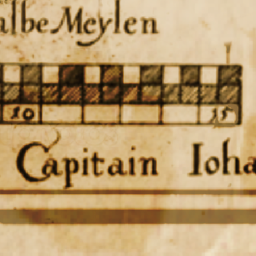 albe Meylen
10 15
Capitain Ioha